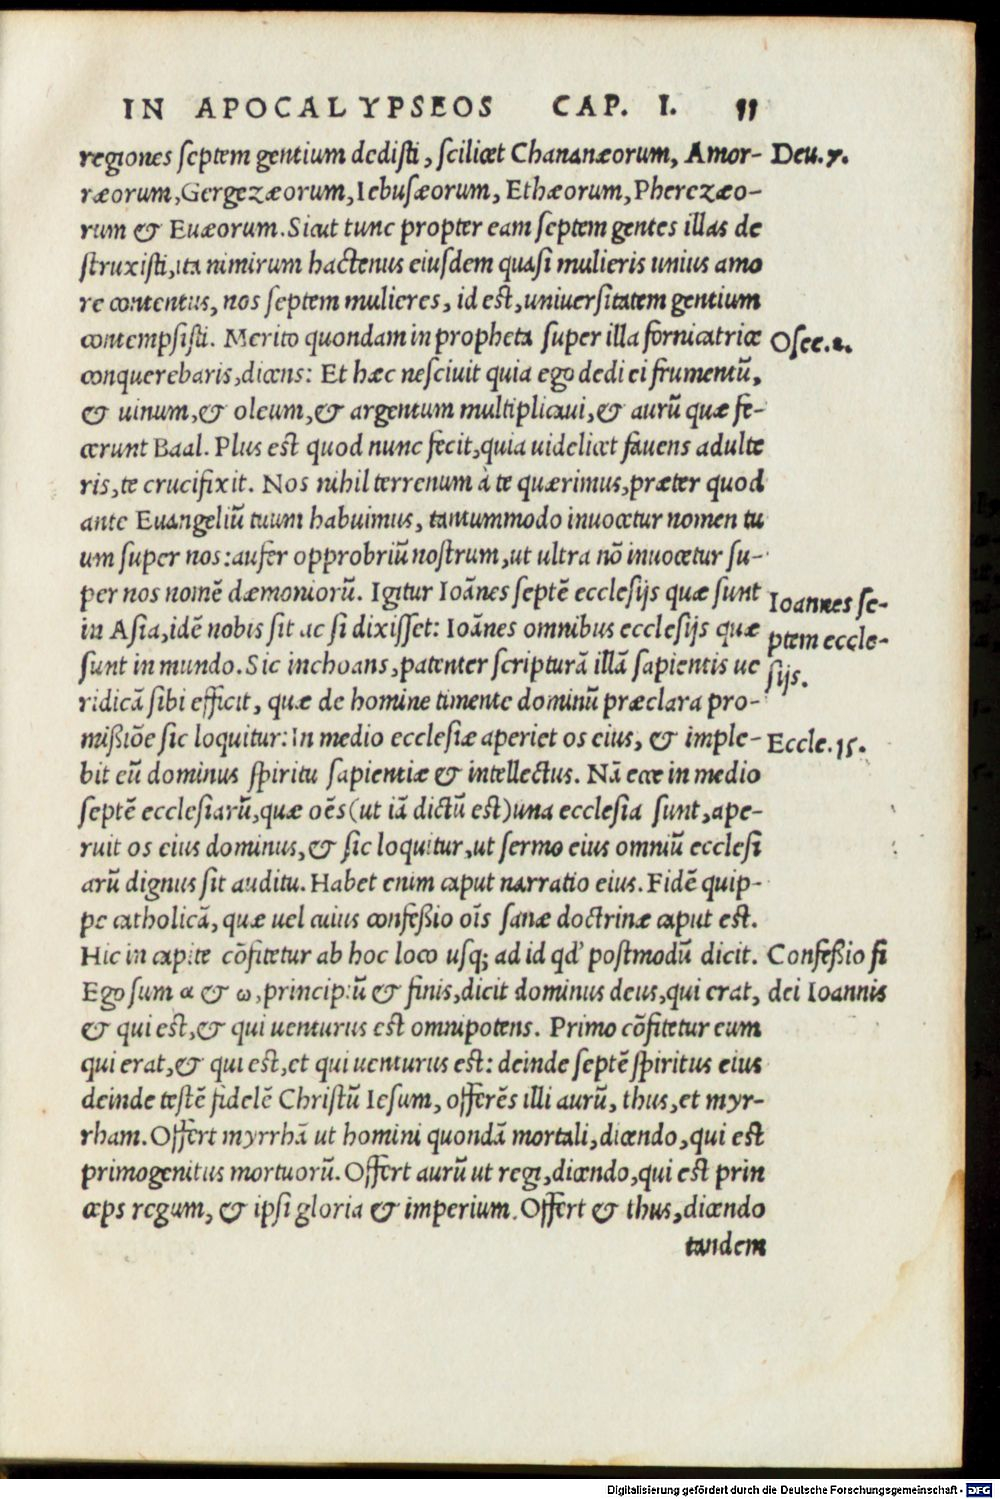 IN APOCALYPSEOS CAP. I. 11
regiones ſeptem gentium dediſti, ſcilicet Chananæorum, Amor- Deu. 7.
ræorum, Gergezæorum, Iebuſæorum, Ethæorum, Pherezæo-
rum & Euæorum. Sicut tunc propter eam ſeptem gentes illas de
ſtruxiſti, ita nimirum hactenus eiuſdem quaſi mulieris unius amo
re contentus, nos ſeptem mulieres, id eſt, uniuerſitatem gentium
contempſiſti. Merito quondam in propheta ſuper illa fornicatrice Oſee. 2.
conquerebaris, dicens: Et hæc neſciuit quia ego dedi ei frumentū,
& uinum, & oleum, & argentum multiplicaui, & aurū quæ fe-
cerunt Baal. Plus eſt quod nunc fecit, quia uidelicet fauens adulte
ris, te crucifixit. Nos nihil terrenum à te quærimus, præter quod
ante Euangeliū tuum habuimus, tantummodo inuocetur nomen tu
um ſuper nos: aufer opprobriū noſtrum, ut ultra nō inuocetur ſu-
per nos nomē dæmoniorū. Igitur Ioānes ſeptē eccleſijs quæ ſunt Ioannes ſe-
in Aſia, idē nobis ſit ac ſi dixiſſet: Ioānes omnibus eccleſijs quæ ptem eccle-
ſunt in mundo. Sic inchoans, patenter ſcripturā illā ſapientis ue ſijs.
ridicā ſibi efficit, quæ de homine timente dominū præclara pro-
mißiōe ſic loquitur: In medio eccleſiæ aperiet os eius, & imple- Eccle. 15.
bit eū dominus ſpiritu ſapientiæ & intellectus. Nā ecce in medio
ſeptē eccleſiarū, quæ oēs (ut iā dictū eſt) una eccleſia ſunt, ape-
ruit os eius dominus, & ſic loquitur, ut ſermo eius omniū eccleſi
arū dignus ſit auditu. Habet enim caput narratio eius. Fidē quip-
pe catholicā, quæ uel cuius confeßio oīs ſanæ doctrinæ caput eſt.
Hic in capite cōfitetur ab hoc loco uſq; ad id qď poſtmodū dicit. Confeßio fi
Ego ſum α & ω, principiū & finis, dicit dominus deus, qui erat, dei Ioannis
& qui eſt, & qui uenturus eſt omnipotens. Primo cōfitetur eum
qui erat, & qui eſt, et qui uenturus eſt: deinde ſeptē ſpiritus eius
deinde teſtē fidelē Chriſtū Ieſum, offerēs illi aurū, thus, et myr-
rham. Offert myrrhā ut homini quondā mortali, dicendo, qui eſt
primogenitus mortuorū. Offert aurū ut regi, dicendo, qui eſt prin
ceps regum, & ipſi gloria & imperium. Offert & thus, dicendo
tandem
Digitalisierung gefördert durch die Deutsche Forschungsgemeinschaft - DFG